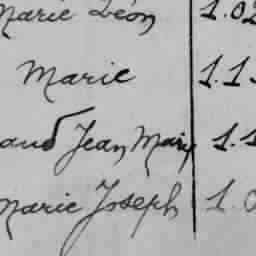 Marie Léon 1.02
Marie 1.1
aud Jean Mary 1.1
Marie Joseph 1.0